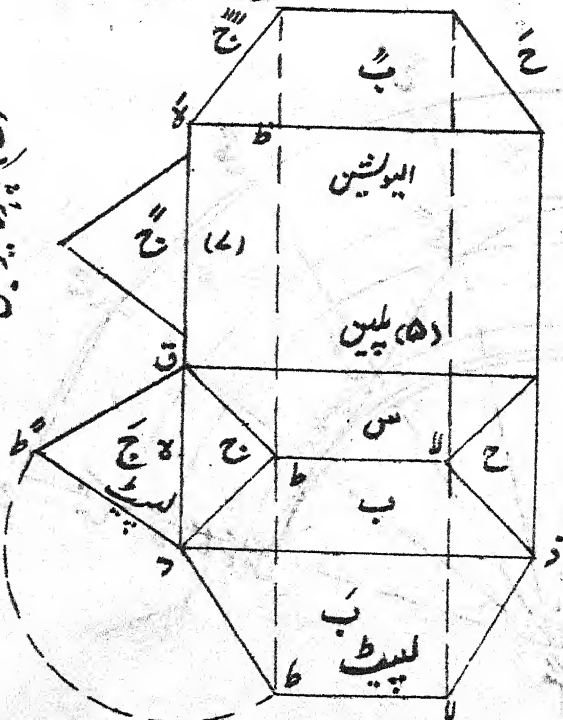 جً
بً
حَ
لاَ
طَ
الیویشن
جً
(۷)
(۵) پلین
ق
س
طً
ہ جَ
ج
ط
لا
ح
لپیٹ
ب
د
بَ
لپیٹ
ط
لا